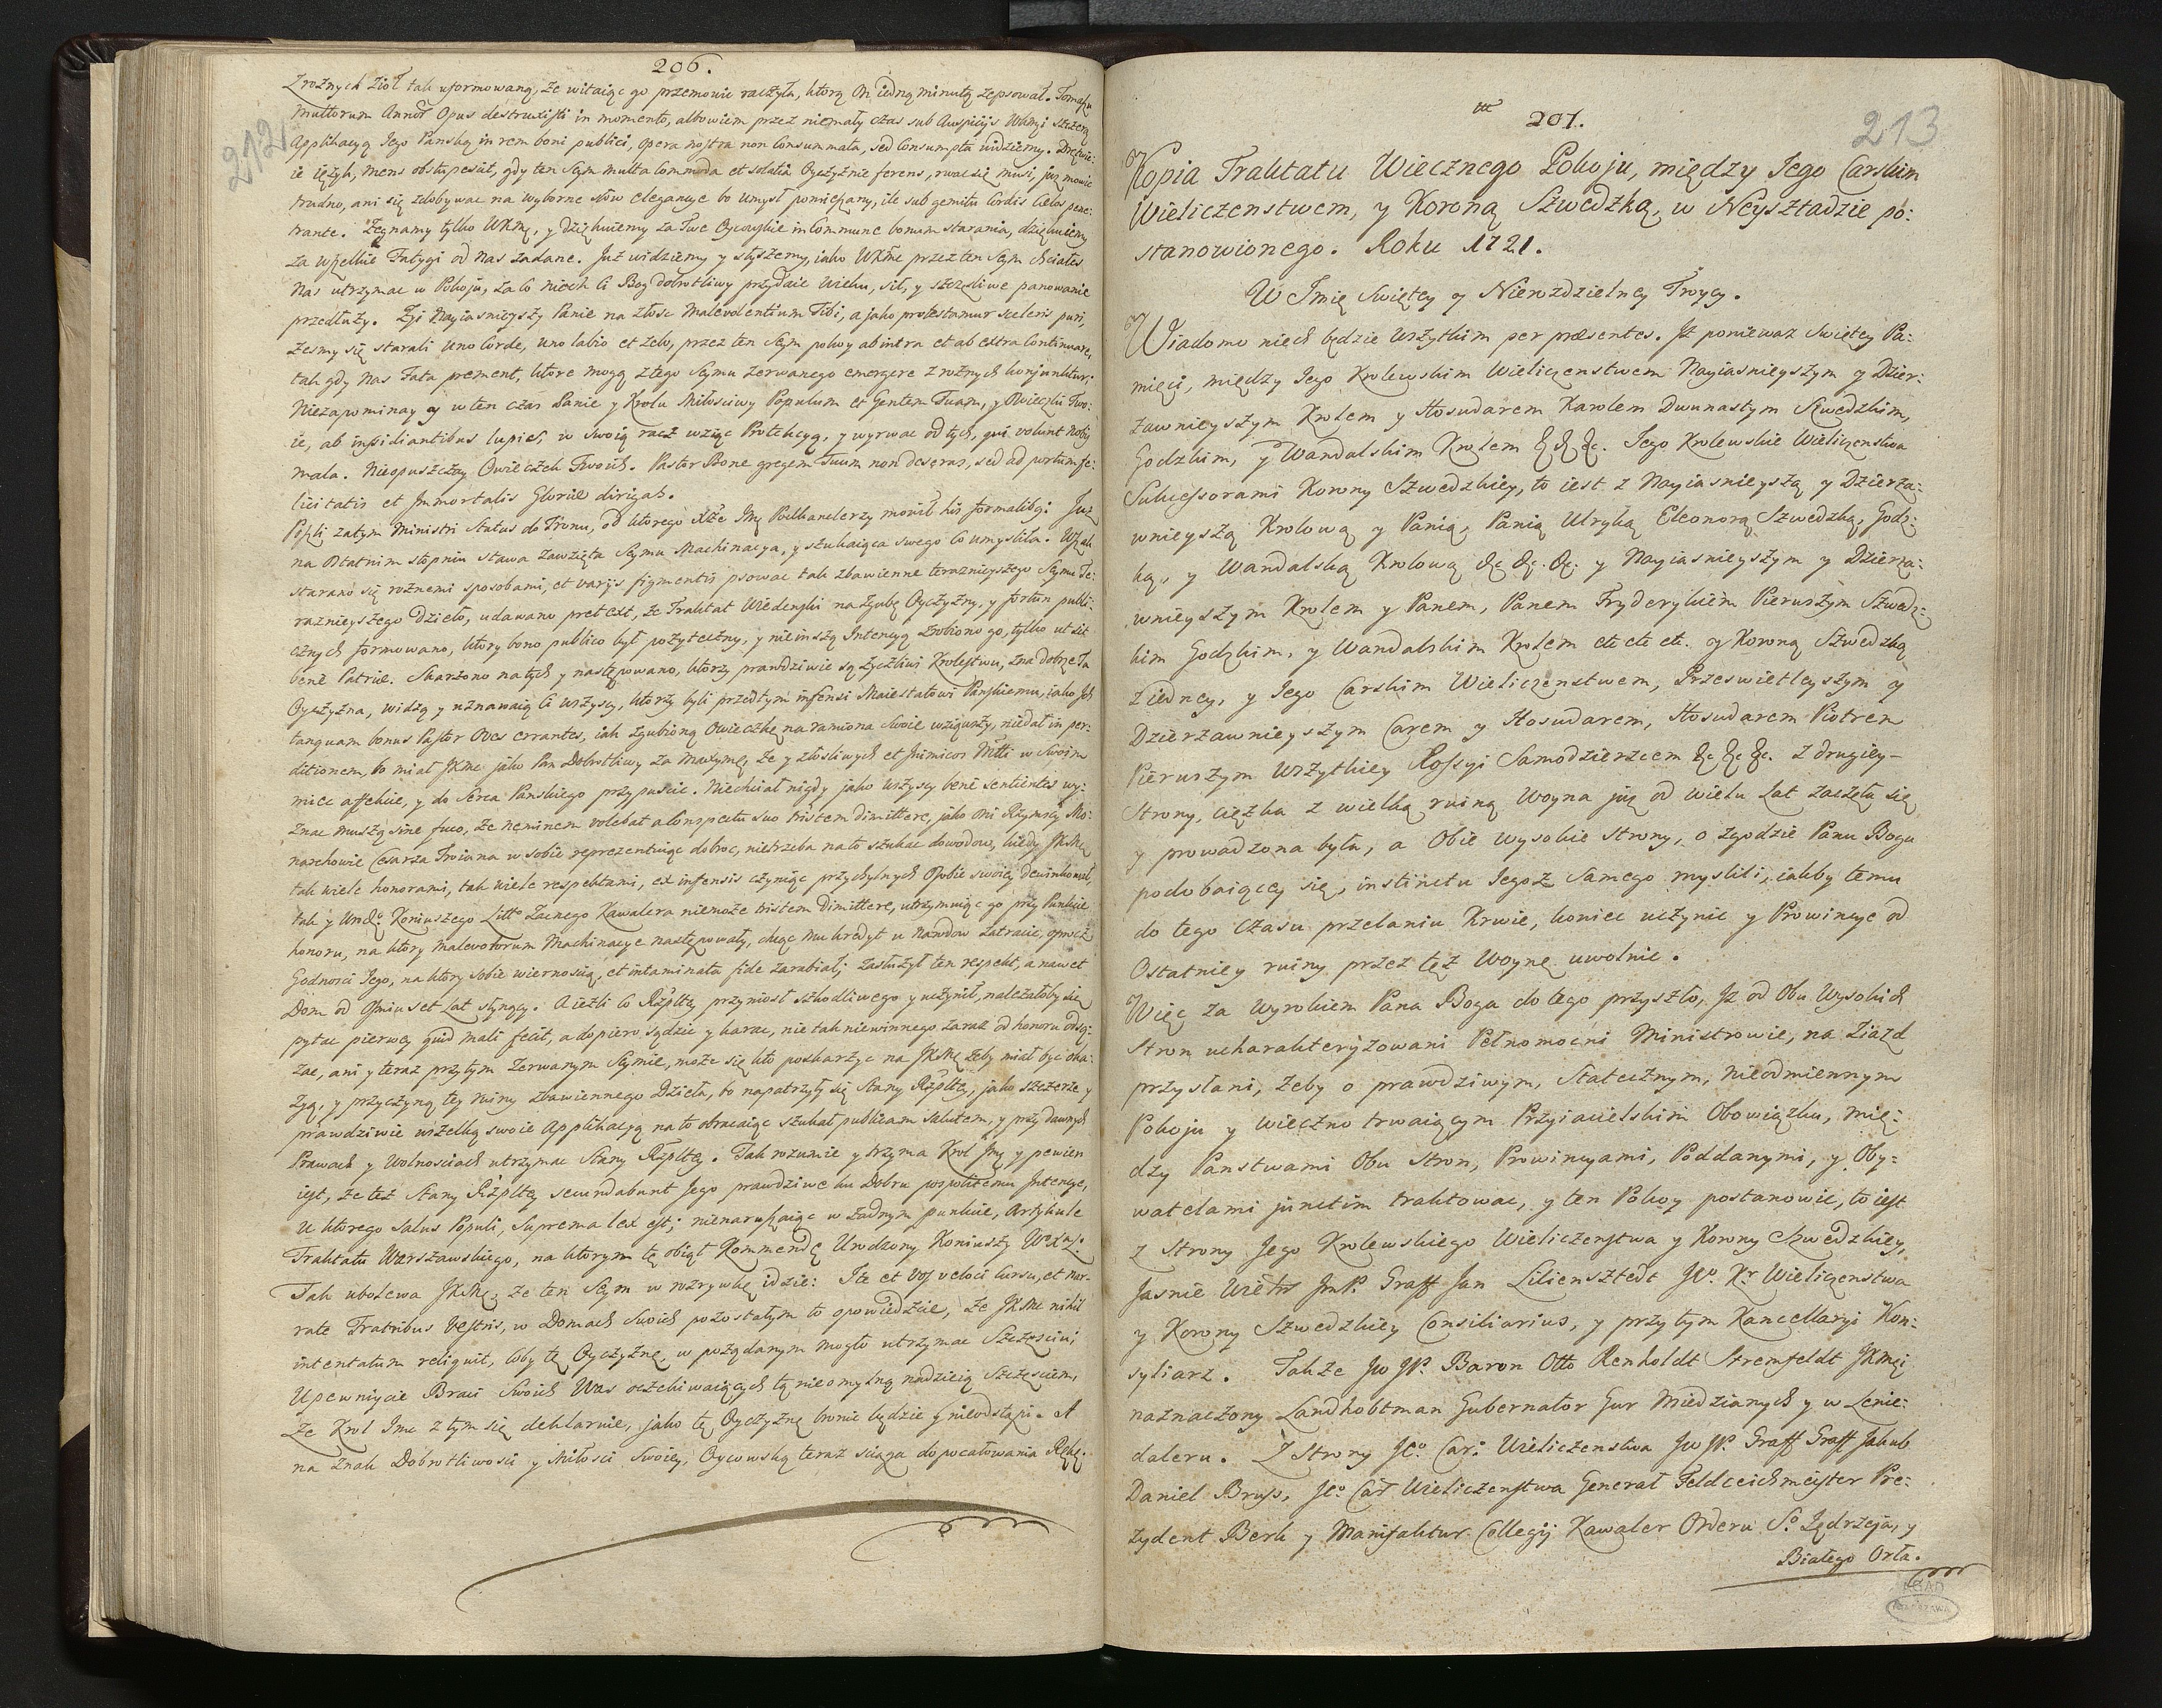 206.
212
Zrożnych Zioł tak uformowaną, że witaiąc go przemowić raczyła, ktorą On iedną minutą zepsował. Tomaszu
multorum Annor Opus destruxisti in momento, albowiem przez niemały czas sub Auspicijs WKMci szczerą
Applikacyą Jego Panską in rem boni publici, opera nostra non Consummata, sed Consumpta widziemy. Drętwie:
ie ięzyk, mens obstupescit, gdy ten Seym multa Commoda et solatia Oyczyznie ferens, rwać się musi, już mowić
trudno, ani się zdobywać na wyborne słow elegancye bo umysł pomieszany, ile sub gemitu Cordis Cælos pene:
trante. Żegnamy tylko WKMć, y dziękuiemy za Twe Oycowskie in Commune bonum starania, dziękuiemy
za wszelkie Fatygi od nas zadane. Już widziemy y słyszemy, iako WKMć przez ten Seym chciałeś
Nas utrzymać w Pokoju, za co niech Ci Bog dobrotliwy przydaie wieku, sił, y szczęśliwe panowanie
przedłuży. Żyi Nayiasnieyszy Panie na złość malevolentium Tibi, a jako protestamur sceleris puri,
żesmy się starali uno Corde, uno labio et zelo, przez ten Seym pokoy ab intra et ab extra Continuare,
tak gdy nas Fata prement, ktore mogą z tego Seymu zerwanego emergere z rożnych konjunktur;
Niezapominay y w ten czas Panie y Krolu Miłosciwy Populum et Gentem Tuam, y Owieczki Two:
ie, ab insidiantibus lupis, w swoią racz wziąć Protekcyą, y wyrwać od tych, qui volunt nobis
mala. Nieopuszczay Owieczek Twoich. Pastor Bone gregem Tuum non deseras, sed ad portum fe:
licitatis et Immortalis Gloriæ dirigas.
Poszli zatym Ministri Status do Tronu, od ktorego Xże Jmć Podkanclerzy mowił his formalibg: Już
na Ostatnim stopniu stawa zawzięta Seymu Machinacya, y szukaiąca swego co umysliła. Wszak
starano się rożnemi sposobami, et varijs figmentis psować tak zbawienne teraznieyszego Seymu Te:
raznieyszego Dzieło, udawano pretext, że Traktat Wiedenski na zgubę Oyczyzny, y fortun publi:
cznych formowano, ktory bono publico był pożyteczny, y nie inszą Intencyą zrobiono go, tylko ut sit
bene Patriæ. Skarżono na tych y następowano, ktorzy prawdziwie są życzliwi Krolestwu, zna dobrze ta
Oyczyzna, widzą y uznawaią Ci wszyscy, ktorzy byli przedtym infensi Maiestatowi Panskiemu, iako Jch
tanquam bonus Pastor Oves errantes, iak zgubioną Owieczkę na ramiona swoie wziąwszy, niedał in per:
ditionem, bo miał JKMć jako Pan Dobrotliwy za maxymę, że y złosliwych et Inimicos mitti w swoim
mieć affekcie, y do serca Panskiego przypuscić. Niechciał nigdy jako wszyscy bene sentientes wy:
znać muszą sine fuco, że neminem volebat a Conspectu suo tristem dimittere, jako oni Rzymscy Mo:
narchowie Cesarza Troiana w sobie reprezentuiąc dobroć, nietrzeba na to szukać dowodow, kiedy JKMć
tak wiele honorami, tak wiele respektami, ex infensis czyniąc przychylnych Osobie swoiey dewinkował,
tak y Urodzgo Koniuszego Litto Zacnego Kawalera niemoże tristem dimittere, utrzymuiąc go przy Punkcie
honoru, na ktory malevolorum Machinacye następowały, chcąc mu kredyt u narodow zatracić, oprocz
Godnosci Jego, na ktory sobie wiernoscią, et intaminata fide zarabiał; zasłużył ten respekt, a nawet
Dom od Osmiuset Lat słynący. A ieżli co Rzpltey przyniosł szkodliwego y uczynił, należałoby się
pytać pierwey quid mali fecit, a dopiero sądzić y karać, nie tak niewinnego zaraz od honoru odsą:
zać, ani y teraz przytym zerwanym Seymie, może się kto poskarżyć na JKMć żeby miał być oka:
zyą, y przyczyną tey ruiny zbawiennego Dzieła, bo napatrzyły się Stany Rzpltey, jako szczerze y
prawdziwie wszelką swoie Applikacyą na to obracaiąc szukał publicam Salutem, y przy dawnych
Prawach y Wolnosciach utrzymać Stany Rzpltey. Tak rozumie y trzyma Krol Jmć y pewien
iest, że też Stany Rzpltey secundabunt Jego prawdziwe ku Dobru pospolitemu Intencye,
u ktorego Salus Populi, Suprema lex est; nienaruszaiąc w żadnym punkcie, Artykule
Traktatu Warszawskiego, na ktorym tę obiął Kommendę Urodzony Koniuszy WXLi.
Tak ubolewa JKMć, że ten Seym w rozrywkę idzie: Ite et vos veloci Cursu, et nar:
rate Fratribus Vestris, w Domach Swoich pozostałym to opowiedzcie, że JKMć nihil
intentatum reliquit, coby tę Oyczyznę w pożądanym mogło utrzymać Szczęsciu;
Upewniycie Braci Swoich Was oczekiwaiących tą nieomylną nadzieią Szczęsciem,
że Krol Jmć z tym się deklaruie, jako tę Oyczyznę bronić będzie y nieodstąpi. A
na znak Dobrotliwosci y Miłosci Swoiey, Oycowską teraz sciąga do pocałowania Rękę.
207.
213
Kopia Traktatu Wiecznego Pokoju, między Jego Carskim
Wieliczenstwem, y Koroną Szwedzką, w Neysztadzie po:
stanowionego. Roku 1721.
W Jmię Swiętey y Nierozdzielney Troycy.
Wiadomo niech będzie wszytkim per præsentes. Jż ponieważ Swiętey Pa:
mięci, między Jego Krolewskim Wieliczenstwem Nayiasnieyszym y Dzier:
zawnieyszym Krolem y Hosudarem Karolem Dwunastym Szwedzkim,
Godzkim, y Wandalskim Krolem &c &c &c. Jego Krolewskie Wieliczenstwa
Sukcessorami Korony Szwedzkiey, to iest z Nayiasnieyszą y Dzierza:
wnieyszą Krolową y Panią, Panią Ulryką Eleonorą Szwedzką, Godz:
ką, y Wandalską Krolową &c &c. &c. y Nayiasnieyszym y Dzierza:
wnieyszym Krolem y Panem, Panem Fryderykiem Pierwszym Szwedz:
kim Godzkim, y Wandalskim Krolem etc etc etc. y Koroną Szwedzką
z iedney, y Jego Carskim Wieliczenstwem, Przeswietleyszym y
Dzierzawnieyszym Carem y Hosudarem, Hosudarem Piotrem
Pierwszym wszytkiey Rossyi Samodzierzcem &c &c &c. z drugiey
Strony, ciężka z wielką ruiną Woyna już od wielu Lat zaczęła się
y prowadzona była, a Obie wysokie Strony, o zgodzie Panu Bogu
podobaiącey się, instinctu Jegoż Samego mysleli, iakby temu
do tego Czasu przelaniu Krwie, koniec uczynić y Prowincye od
Ostatniey ruiny przez tęż Woynę uwolnić.
Więc za wyrokiem Pana Boga do tego przyszło, Jż od Obu Wysokich
Stron ucharakteryzowani Pełnomocni Ministrowie, na ziazd
przysłani, żeby o prawdziwym, Statecznym, nieodmiennym
Pokoju y wieczno trwaiącym Przyiacielskim Obowiązku, mię:
dzy Panstwami Obu Stron, Prowincyami, Poddanymi, y Oby:
watelami junctim traktować, y ten Pokoy postanowić, to iest
z Strony Jego Krolewskiego Wieliczenstwa y Korony Szwedzkiey,
Jasnie Wiel JmP. Graff Jan Liliensztedt Jeo. Kr. Wieliczenstwa
y Korony Szwedzkiey Consiliarius, y przytym Kancellaryi Kon:
syliarz. Także Jw JP. Baron Otto Renholdt Stremfeldt JKMci
naznaczony Landshobtman Gubernator Gur Miedzianych y w Lenie:
daleru. Z Strony Jeo. Car: Wieliczenstwa Jw JP. Graff Graff Jakub
Daniel Bruss, Jeo. Car Wieliczenstwa Generał Feldceichmeyster Pre:
zydent Berk y Manifaktur Collegij Kawaler Orderu So. Jędrzeja, y
Białego Orła.
AGAD
WARSZAWA